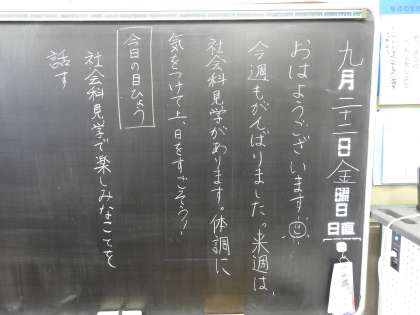 九月二十二日金曜日
日直
おはようございます
今週もがんばりました。来週は、
社会科見学があります。体調に
気をつけて土、日をすごそう！
今日の目ひょう
社会科見学で楽しみなことを
話す